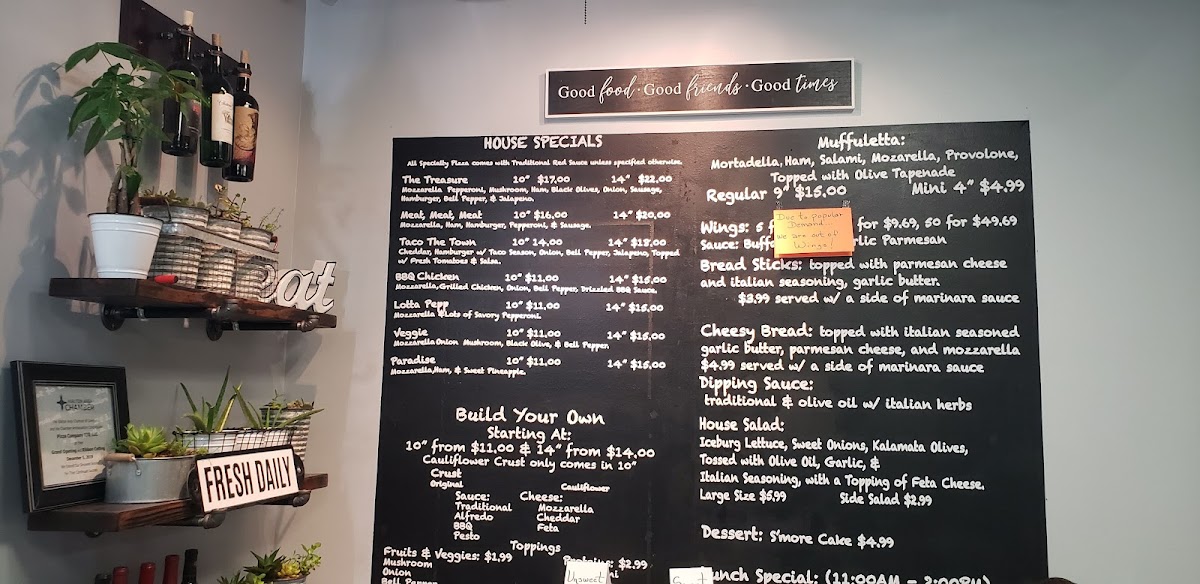 Good food · Good friends · Good times
HOUSE SPECIALS
All Specialty Pizza comes with Traditional Red Sauce unless specified otherwise.
The Treasure 10" $17.00 14" $22.00
Mozzarella Pepperoni, Mushroom, Ham, Black Olives, Onion, Sausage,
Hamburger, Bell Pepper, & Jalapeno.
Meat, Meat, Meat 10" $16.00 14" $20.00
Mozzarella, Ham, Hamburger, Pepperoni, & Sausage.
Taco The Town 10" 14.00 14" $18.00
Cheddar, Hamburger w/ Taco Season, Onion, Bell Pepper, Jalapeno, Topped
w/ Fresh Tomatoes & Salsa.
BBQ Chicken 10" $11.00 14" $15.00
Mozzarella, Grilled Chicken, Onion, Bell Pepper, Drizzled BBQ Sauce.
Lotta Pepp 10" $11.00 14" $15.00
Mozzarella & Lots of Savory Pepperoni.
Veggie 10" $11.00 14" $15.00
Mozzarella Onion Mushroom, Black Olive, & Bell Pepper,
Paradise 10" $11.00 14" $15.00
Mozzarella, Ham, & Sweet Pineapple.
Build Your Own
Starting At:
10" from $11.00 & 14" from $14.00
Cauliflower Crust only comes in 10"
Crust
Original Cauliflower
Sauce: Cheese:
Traditional Mozzarella
Alfredo Cheddar
BBQ Feta
Pesto
Toppings
Fruits & Veggies: $1.99 $2.99
Mushroom
Onion
Bell Pepper
Unsweet
Muffuletta:
Mortadella, Ham, Salami, Mozarella, Provolone,
Topped with Olive Tapenade
Regular 9" $15.00 Mini 4" $4.99
Wings: 5 for $9.69, 50 for $49.69
Sauce: Parmesan
Due to popular
Demand
we are out of
Wings!
Bread Sticks: topped with parmesan cheese
and italian seasoning, garlic butter.
$3.99 served w/ a side of marinara sauce
Cheesy Bread: topped with italian seasoned
garlic butter, parmesan cheese, and mozzarella
$4.99 served w/ a side of marinara sauce
Dipping Sauce:
traditional & olive oil w/ italian herbs
House Salad:
Iceburg Lettuce, Sweet Onions, Kalamata Olives,
Tossed with Olive Oil, Garlic, &
Italian Seasoning, with a Topping of Feta Cheese.
Large Size $6.99 Side Salad $2.99
Dessert: S'more Cake $4.99
Lunch Special: (11:00AM - 2:00PM)
eat
CHAMBER
Grand Opening and Ribbon Cutting
FRESH DAILY